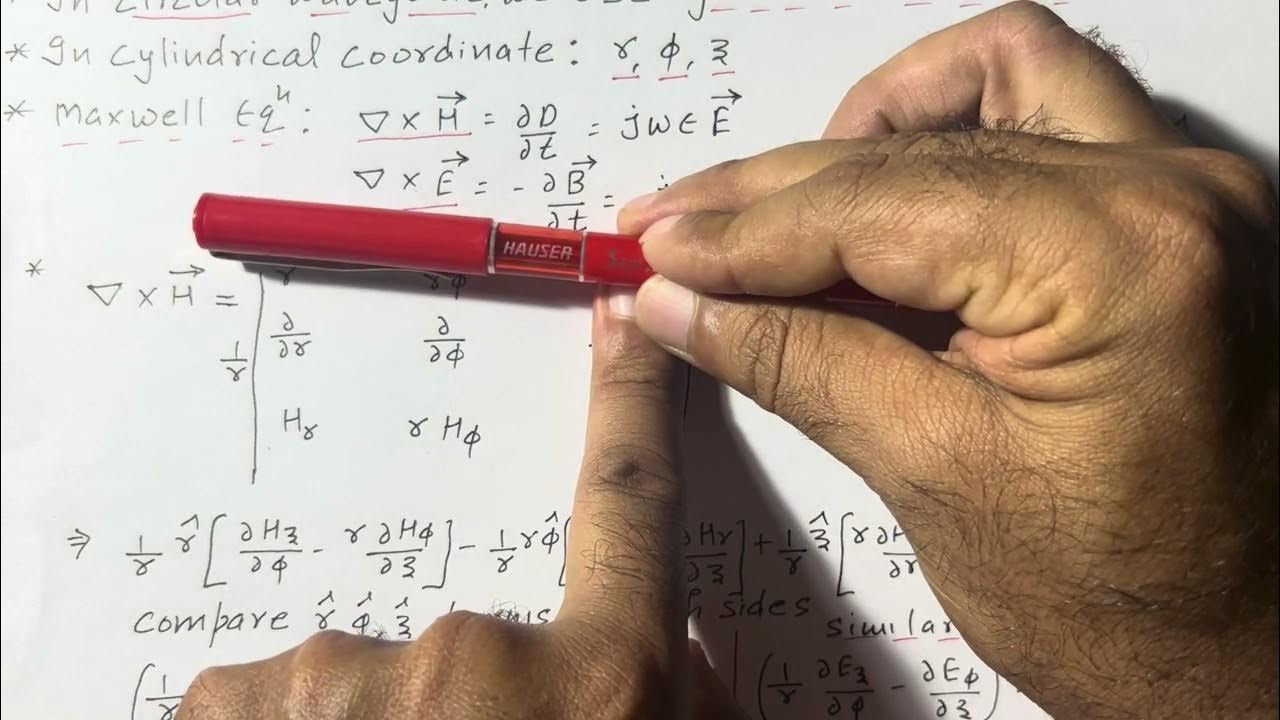 In Circular
* In Cylindrical Coordinate: r, ϕ, z
* Maxwell Eqⁿ: ∇ × H⃗ = ∂D/∂t = jωϵ E⃗
∇ × E⃗ = - ∂B⃗/∂t =
HAUSER
*
r rϕ
∇ × H⃗ = 1/r | ∂/∂r ∂/∂ϕ
H_r r H_ϕ
⇒ 1/r r̂ [ ∂H_z/∂ϕ - r ∂H_ϕ/∂z ] - 1/r r ϕ̂ [ ∂H_r/∂z ] + 1/r ẑ [ r ∂H/∂r
compare r̂ ϕ̂ ẑ sides similar
( 1/r | ( 1/r ∂E_z/∂ϕ - ∂E_ϕ/∂z )